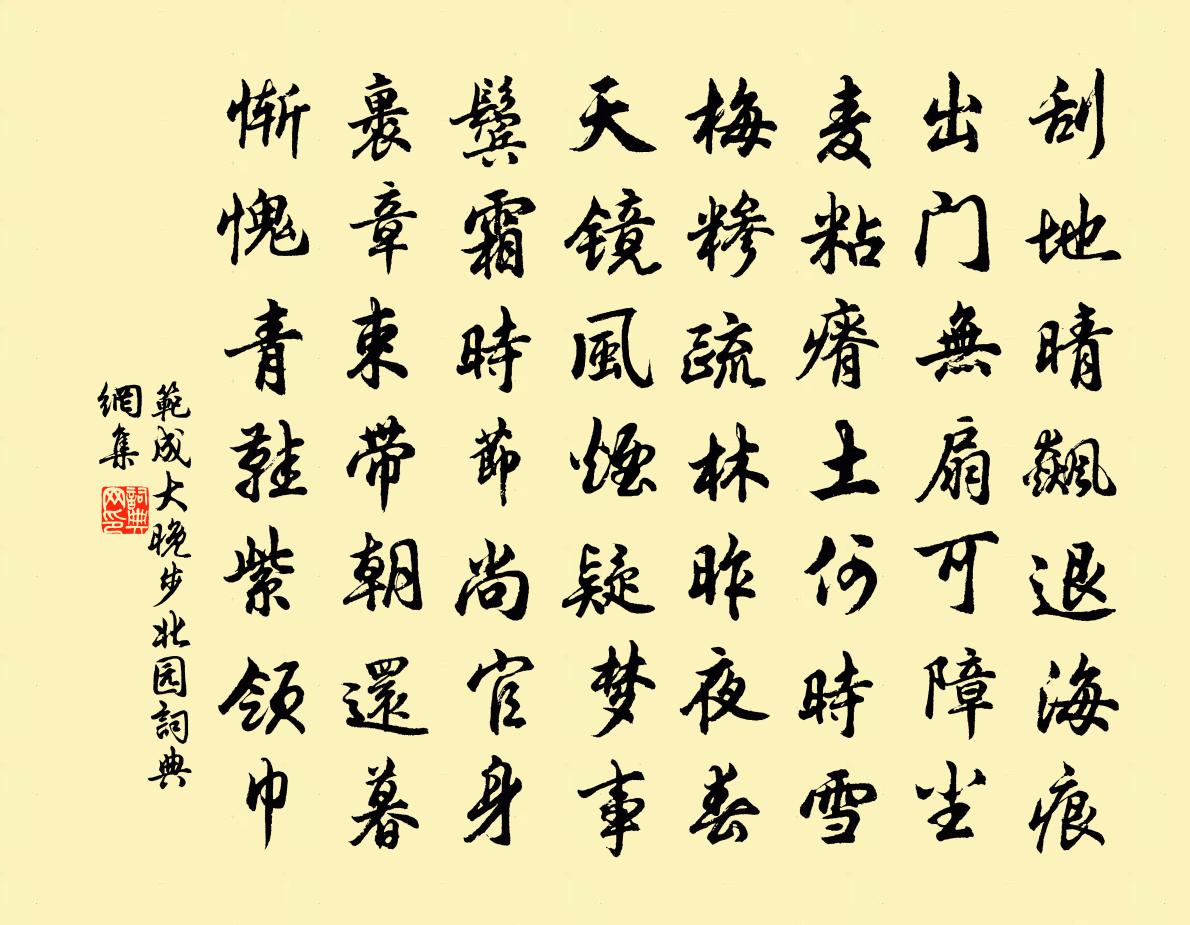 刮地晴飆退海痕
出门無扇可障尘
麦粘瘠土何時雪
梅糁疏林昨夜春
天镜風煙疑梦事
鬓霜時節尚官身
裹章束带朝還暮
惭愧青鞋紫领巾
範成大晚步北园詞典
網集
詞典
网印